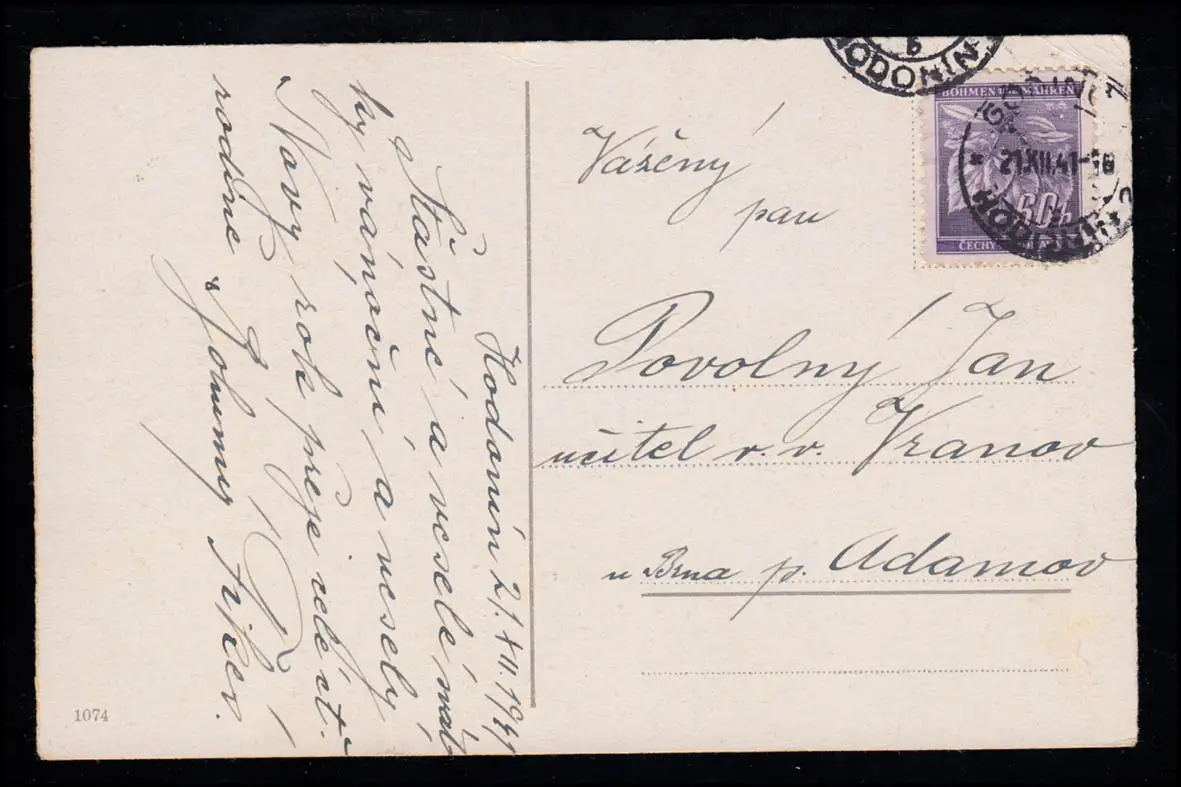 Hodonín 21.XII.1941
Šťastné a veselé svát
ky vánoční, a veselý
Nový rok přeje celé ct.
rodině Johnny
Vážený
pan
Povolný Jan
učitel v. v. Vranov
u Brna p. Adamov
BÖHMEN UND MÄHREN
60h
ČECHY A MORAVA
GÖDING
21.XII.41-16
HODONÍN
b
HODONÍN
1074